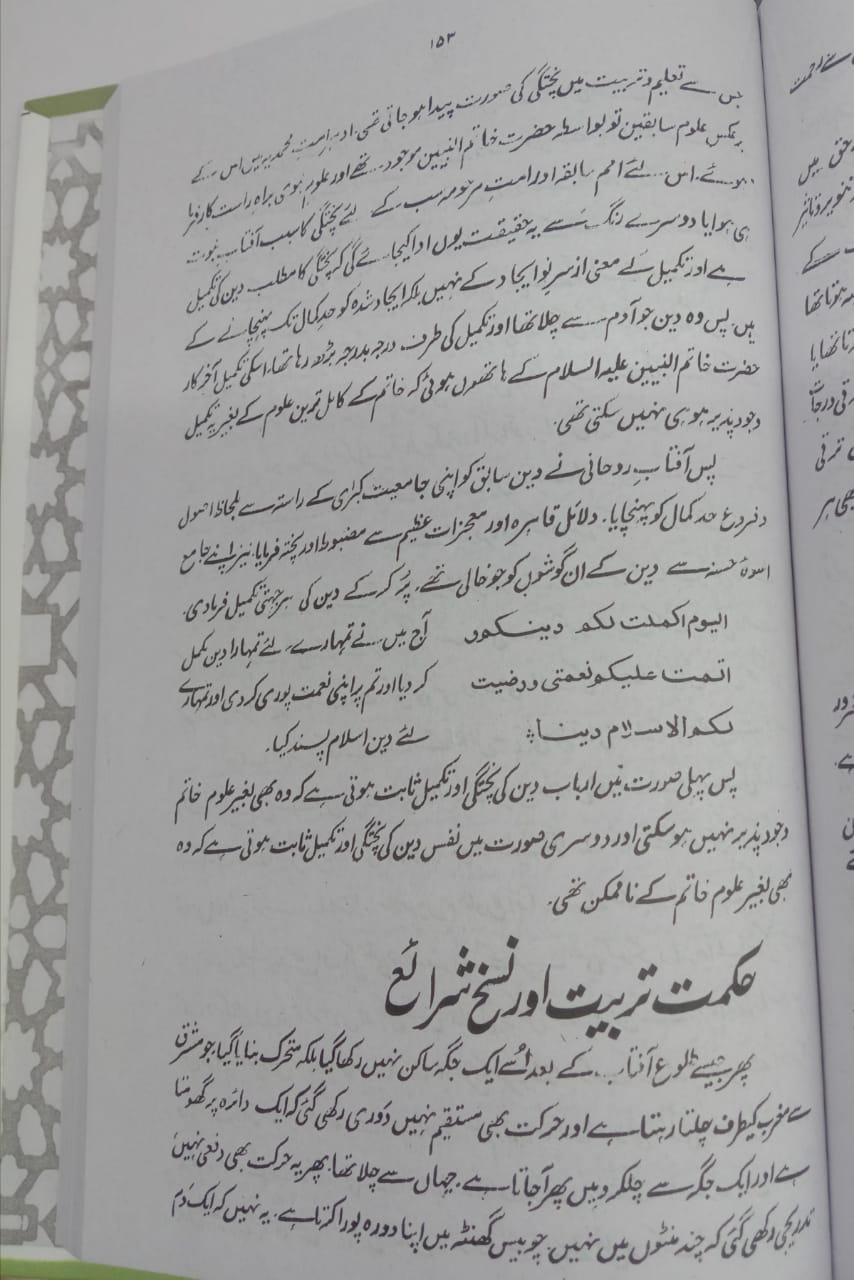 ۱۵۳
جس سے تعلیم و تربیت میں پختگی کی صورت پیدا ہو جاتی تھی، اور امتِ محمدیہ میں اس کے
برعکس علوم سابقین تو بواسطہ حضرت خاتم النبیین موجود تھے اور علوم نبوی براہِ راست کارفرما
ہوئے۔ اس لئے امم سابقہ اور امتِ مرحومہ سب کے لئے پختگی کا سبب آفتاب نبوت
ہی ہوا یا دوسرے رنگ سے یہ حقیقت یوں ادا کیجائے گی کہ پختگی کا مطلب دین کی تکمیل
ہے اور تکمیل کے معنی از سرِنو ایجاد کے نہیں بلکہ ایجاد شدہ کو حدِ کمال تک پہنچانے کے
ہیں۔ پس وہ دین جو آدم سے چلا تھا اور تکمیل کی طرف درجہ بدرجہ بڑھ رہا تھا، اسکی تکمیل آخر کار
حضرت خاتم النبیین علیہ السلام کے ہاتھوں ہوئی کہ خاتم کے کامل ترین علوم کے بغیر یہ تکمیل
وجود پذیر ہو ہی نہیں سکتی تھی۔
پس آفتابِ روحانی نے دین سابق کو اپنی جامعیت کبریٰ کے راستہ سے بلحاظ اصول
و فروع حد کمال کو پہنچایا۔ دلائل قاہرہ اور معجزات عظیم سے مضبوط اور پختہ فرمایا، نیز اپنے جامع
اسوۂ حسنہ سے دین کے ان گوشوں کو جو خالی تھے، پُر کر کے دین کی ہر جہتی تکمیل فرما دی۔
الیوم اکملت لکم دینکم و آج میں نے تمہارے لئے تمہارا دین مکمل
اتممت علیکم نعمتی ورضیت کر دیا اور تم پر اپنی نعمت پوری کر دی اور تمہارے
لکم الاسلام دینا لئے دین اسلام پسند کیا۔
پس پہلی صورت میں ارباب دین کی پختگی اور تکمیل ثابت ہوتی ہے کہ وہ بھی بغیر علوم خاتم
وجود پذیر نہیں ہو سکتی اور دوسری صورت میں نفس دین کی پختگی اور تکمیل ثابت ہوتی ہے کہ وہ
بھی بغیر علوم خاتم کے ناممکن تھی۔
حکمت تربیت اور نسخ شرائع
پھر جیسے طلوع آفتاب کے بعد اُسے ایک جگہ ساکن نہیں رکھا گیا بلکہ متحرک بنایا گیا، جو مشرق
سے مغرب کیطرف چلتا رہتا ہے اور حرکت بھی مستقیم نہیں دَوری رکھی گئی کہ ایک دائرہ پر گھومتا
ہے اور ایک جگہ سے چلکر وہیں پھر آجاتا ہے۔ جہاں سے چلا تھا۔ پھر یہ حرکت بھی دفعی نہیں
تدریجی رکھی گئی کہ چند منٹوں میں نہیں۔ چوبیس گھنٹہ میں اپنا دورہ پورا کرتا ہے۔ یہ نہیں کہ ایک دم